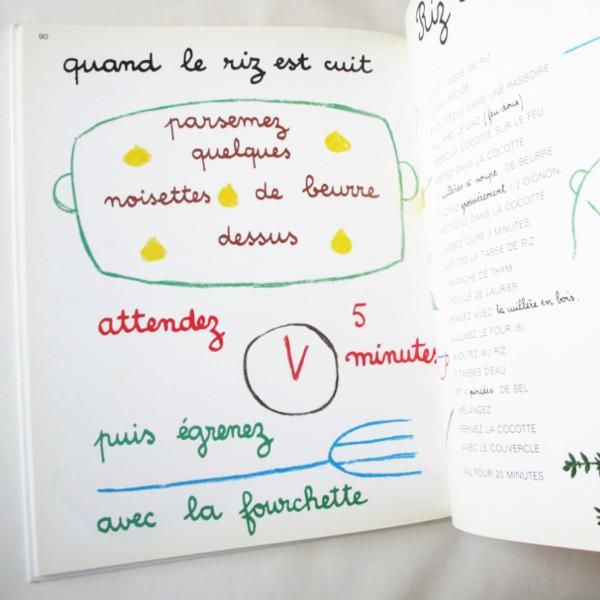 90
quand le riz est cuit
parsemez
quelques
noisettes de beurre
dessus
attendez
5
minutes
puis égrenez
avec la fourchette
Riz
TASSE DE RIZ
DANS UNE PASSOIRE
LE GAZ (feu doux)
LA COCOTTE SUR LE FEU
DANS LA COCOTTE
à soupe DE BEURRE
grossièrement 1/2 OIGNON
LE DANS LA COCOTTE
CUIRE 3 MINUTES
LA TASSE DE RIZ
BRANCHE DE THYM
FEUILLE DE LAURIER
REMUEZ AVEC la cuillère en bois.
ALLUMEZ LE FOUR (8)
AJOUTEZ AU RIZ
TASSES D'EAU
ET 4 pincées DE SEL
MÉLANGEZ
FERMEZ LA COCOTTE
AVEC LE COUVERCLE
AU FOUR 20 MINUTES